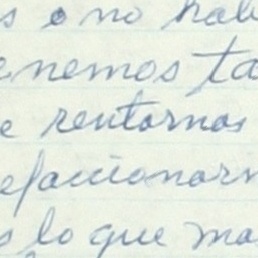 s o no hab
enemos ta
e rentarnos
efaccionarn
s lo que mas